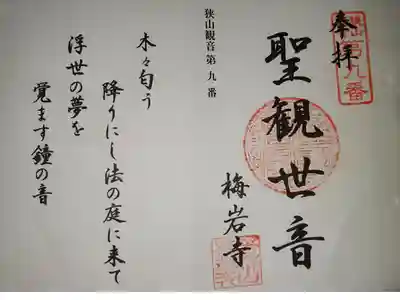 奉拝
狭山第九番
聖観世音
梅岩寺
狭山観音第九番
木々匂う
降りにし法の庭に来て
浮世の夢を
覚ます鐘の音